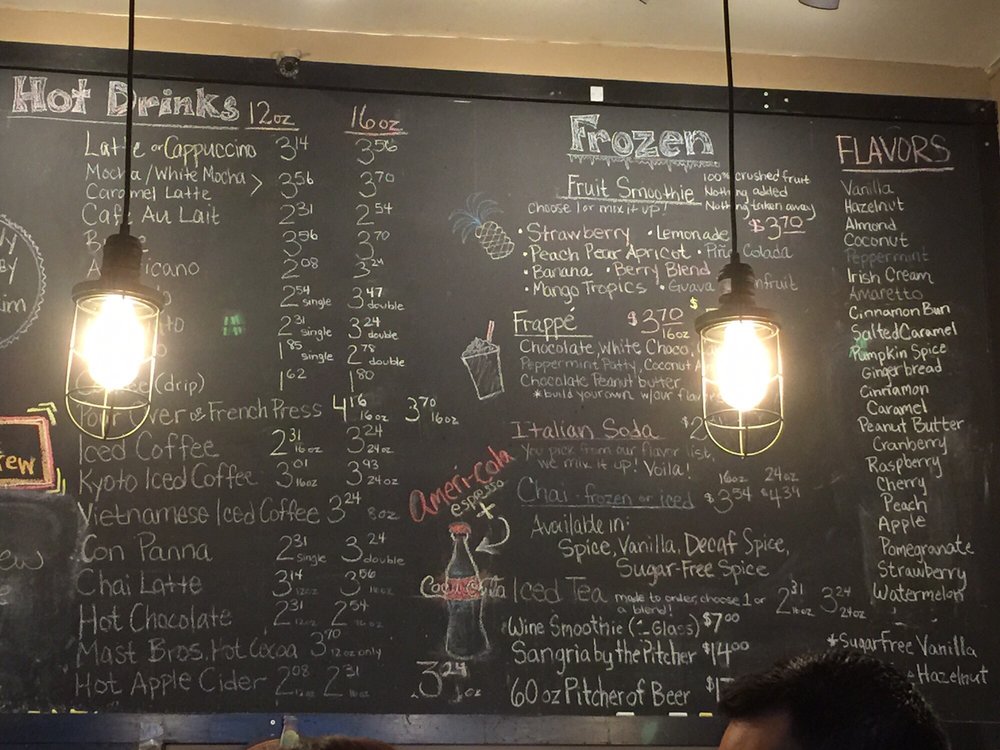 Hot Drinks 12oz 16oz
Latte or Cappuccino 3.14 3.56
Mocha/White Mocha
Caramel Latte > 3.56 3.70
Café Au Lait 2.31 2.54
3.56 3.70
2.08 3.24
2.54 single 3.47 double
2.31 single 3.24 double
1.85 single 2.78 double
(drip) 1.62 1.80
Pour Over or French Press 4.16 16oz 3.70 16oz
Iced Coffee 2.31 16oz 3.24 24oz
Kyoto Iced Coffee 3.01 16oz 3.93 24oz
Vietnamese Iced Coffee 3.24 8oz
Con Panna 2.31 single 3.24 double
Chai Latte 3.14 12oz 3.56 16oz
Hot Chocolate 2.31 12oz 2.54 16oz
Mast Bros. Hot Cocoa 3.70 12oz only
Hot Apple Cider 2.08 12oz 2.31 16oz
Ameri-Cola
espresso
+
Coca-Cola
3.24
Frozen
Fruit Smoothie
100% crushed fruit
Nothing added
Nothing taken away
Choose 1 or mix it up! $3.70
• Strawberry • Lemonade
• Peach Pear Apricot • Piña Colada
• Banana • Berry Blend
• Mango Tropics • Guava
Frappé $3.70 16oz
Chocolate, White Choco,
Peppermint Patty, Coconut
Chocolate Peanut butter
*build your own w/our
Italian Soda
You pick from our flavor list,
we mix it up! Voila!
16oz 24oz
Chai - frozen or iced $3.54 $4.39
Available in:
Spice, Vanilla, Decaf Spice,
Sugar-Free Spice
Iced Tea made to order, choose 1 or a blend! 2.31 16oz 3.24 24oz
Wine Smoothie Glass) $7.00
Sangria by the Pitcher $14.00
60 oz Pitcher of Beer
FLAVORS
Vanilla
Hazelnut
Almond
Coconut
Peppermint
Irish Cream
Amaretto
Cinnamon Bun
Salted Caramel
Pumpkin Spice
Gingerbread
Cinnamon
Caramel
Peanut Butter
Cranberry
Raspberry
Cherry
Peach
Apple
Pomegranate
Strawberry
Watermelon
*Sugar Free Vanilla
Hazelnut